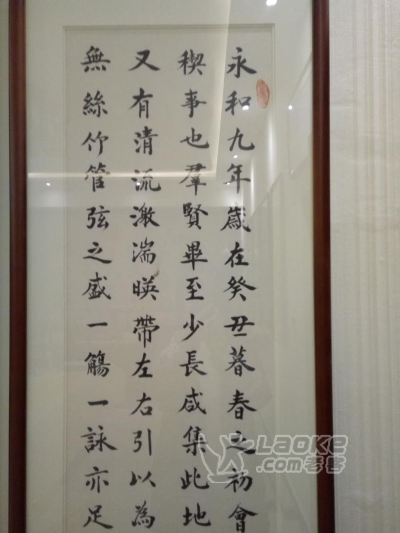 永和九年歲在癸丑暮春之初會
稧事也羣賢畢至少長咸集此地
又有清流激湍暎帶左右引以為
無絲竹管弦之盛一觴一詠亦足
LAOKE
.com老客